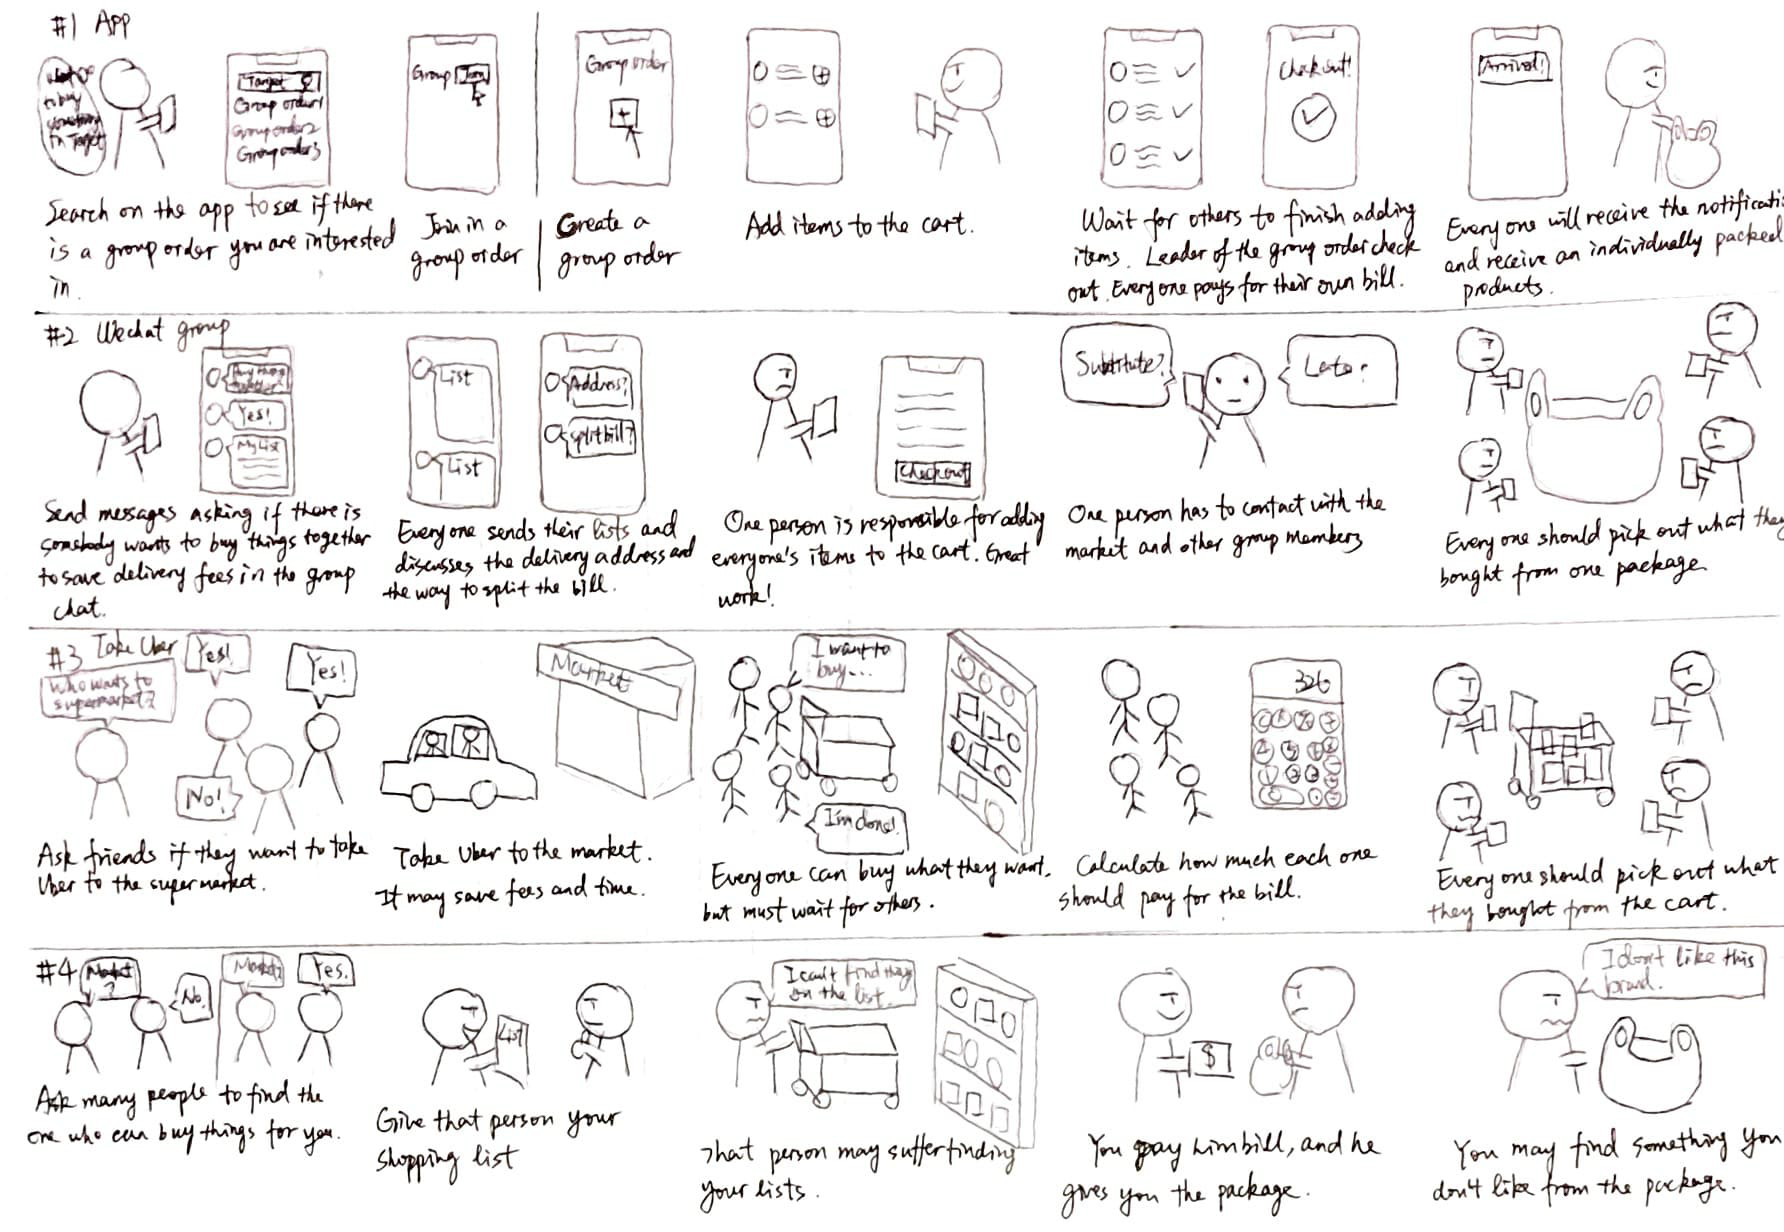 #1 App
Want to
to buy
something
in Target
Target
Group order1
Group order2
Group order3
Search on the app to see if there
is a group order you are interested
in.
Group Join
Join in a
group order
Group order
+
Create a
group order
Add items to the cart.
Check out!
Wait for others to finish adding
items. Leader of the group order check
out. Everyone pays for their own bill.
Arrival!
Everyone will receive the notificati
and receive an individually packed
products.
#2 Wechat group
Yes!
My List
Send messages asking if there is
somebody wants to buy things together
to save delivery fees in the group
chat.
List
List
Address?
split bill?
Everyone sends their lists and
discusses the delivery address and
the way to split the bill.
Checkout
One person is responsible for adding
everyone's items to the cart. Great
work!
Substitute?
Late?
One person has to contact with the
market and other group members
Everyone should pick out what they
bought from one package.
#3 Take Uber
Who wants to
supermarket?
Yes!
Yes!
No!
Ask friends if they want to take
Uber to the supermarket.
Market
Take Uber to the market.
It may save fees and time.
I want to
buy...
I'm done!
Everyone can buy what they want,
but must wait for others.
326
Calculate how much each one
should pay for the bill.
Everyone should pick out what
they bought from the cart.
#4
Market
?
No.
Market?
Yes.
Ask many people to find the
one who can buy things for you.
List
Give that person your
shopping list
I can't find things
on the list.
That person may suffer finding
your lists.
$
You pay him bill, and he
gives you the package.
I don't like this
brand.
You may find something you
don't like from the package.